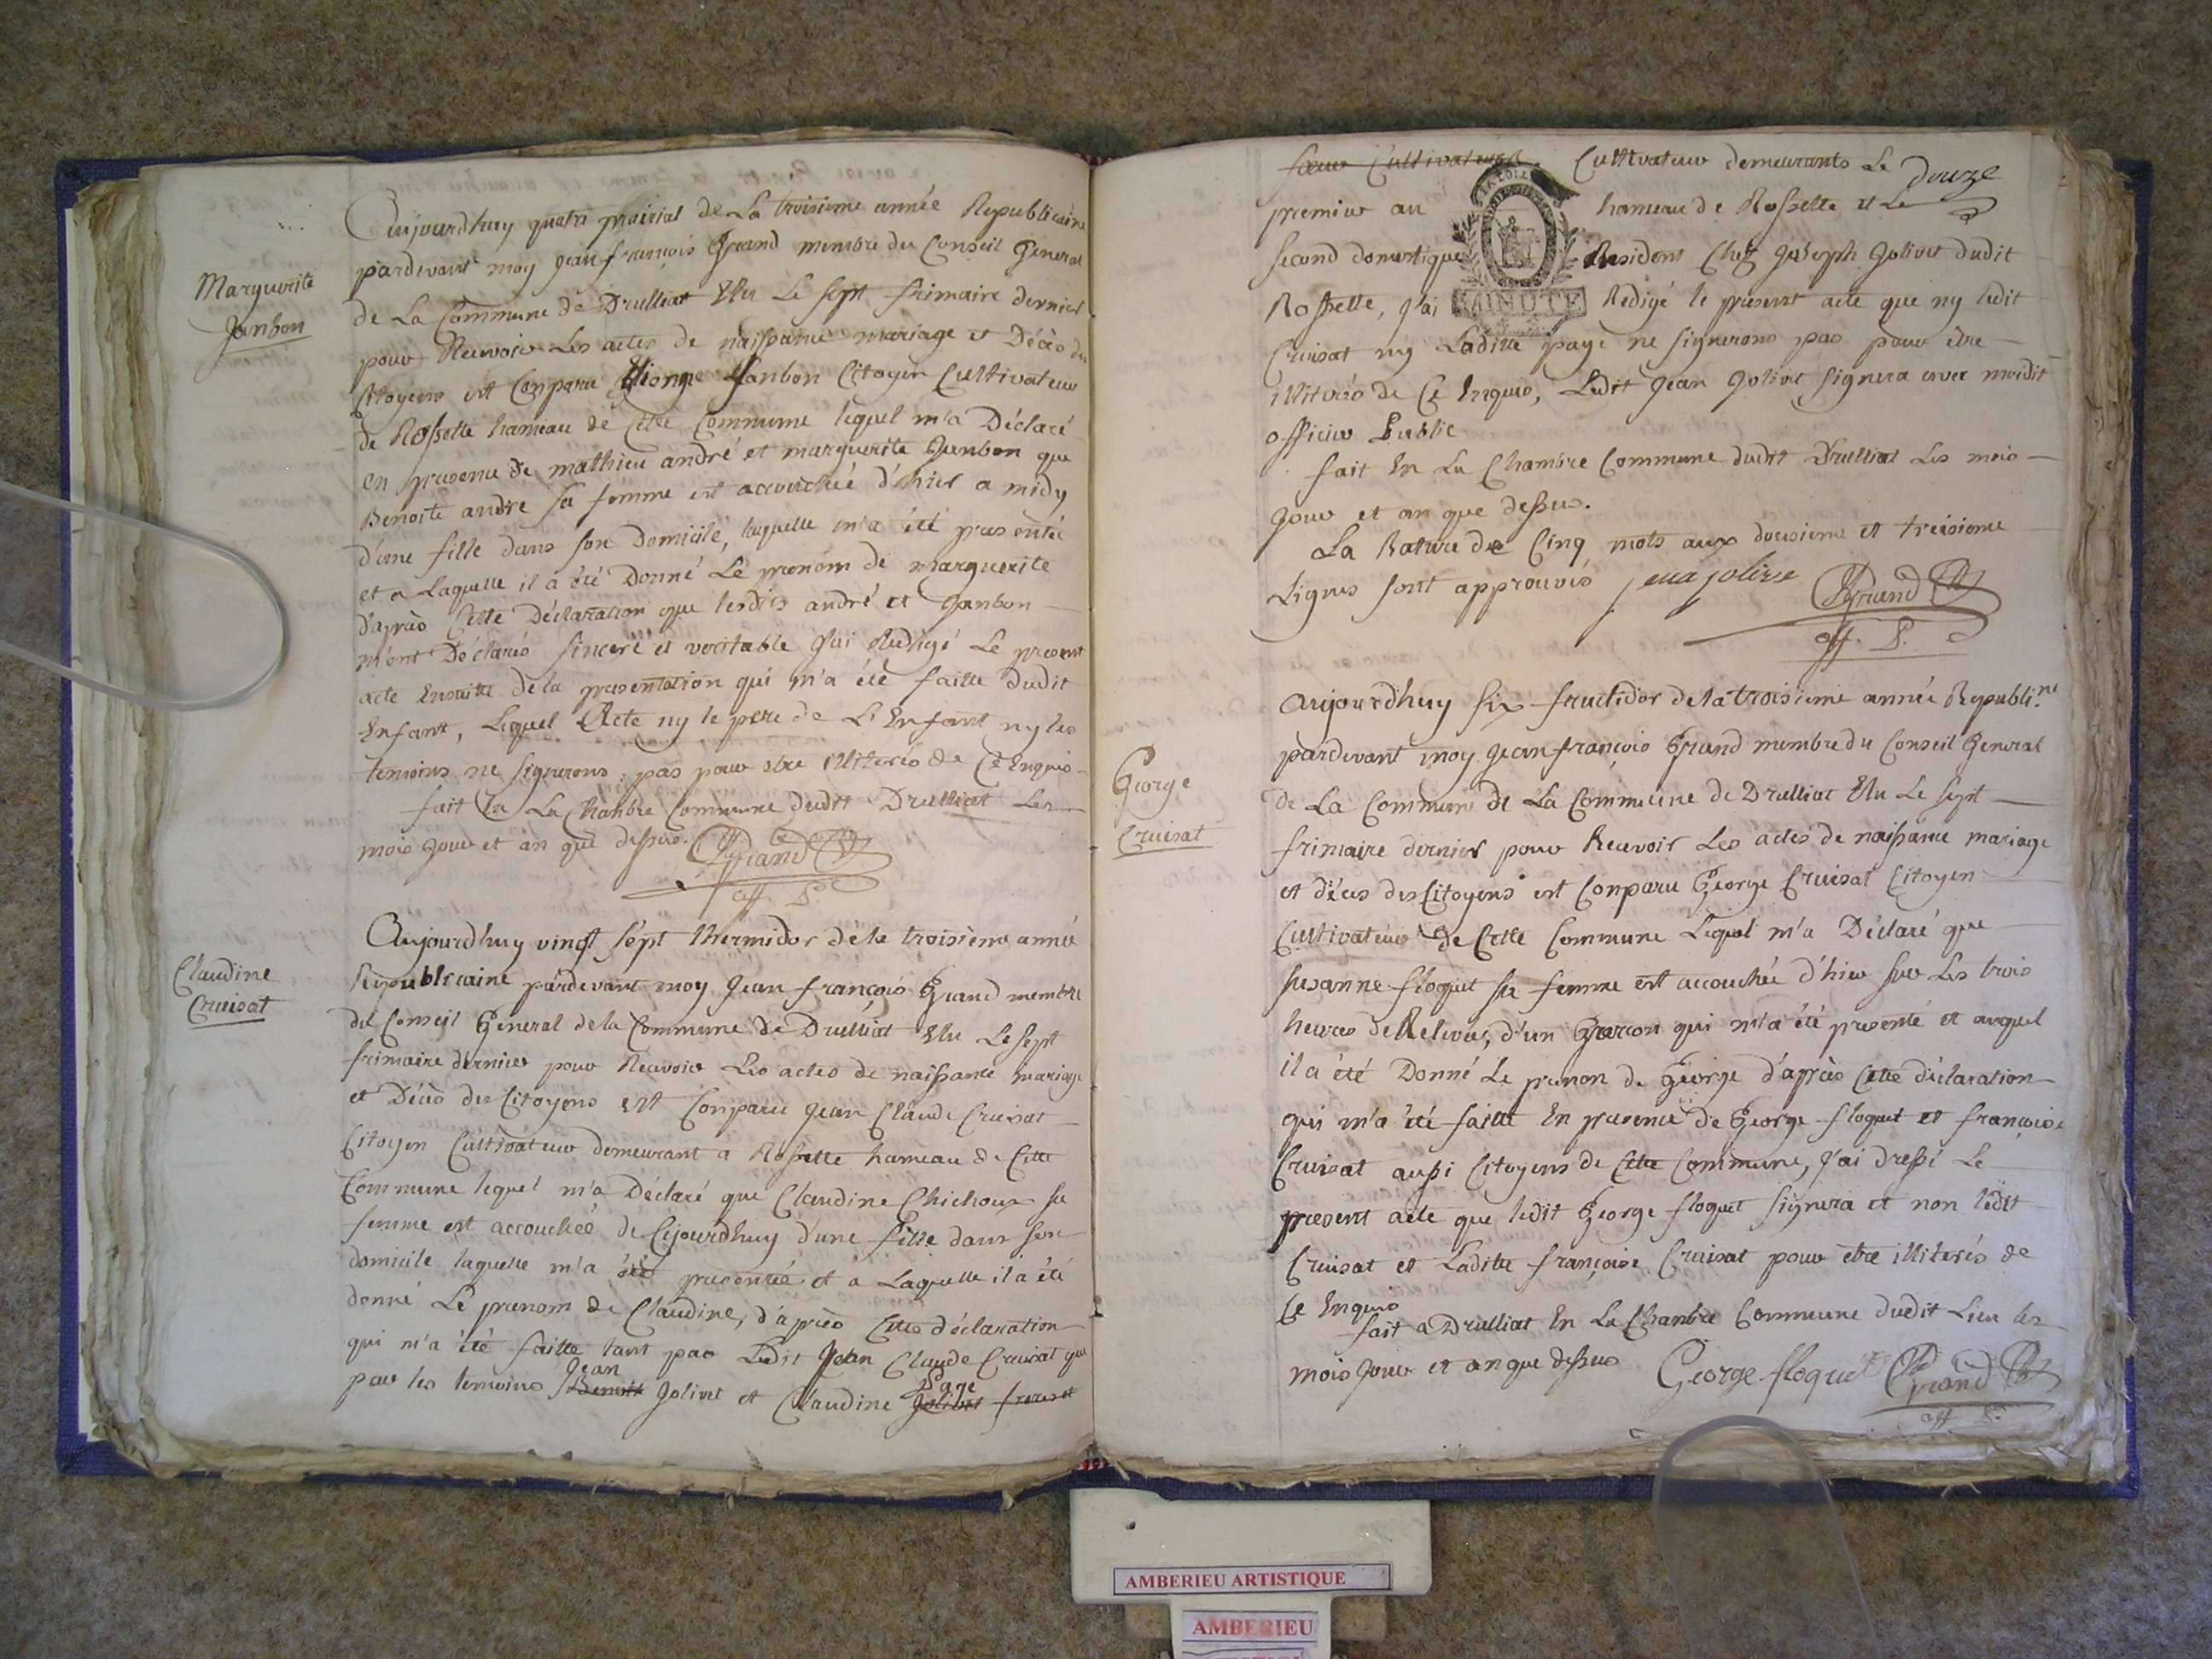 Marguerite
Janbon
Aujourdhuy quatre prairial de La troisieme année Republicaine
pardevant moy Jean françois Grand membre du Conseil General
de La Commune de Drulliat Elu Le sept frimaire dernier
pour Recevoir Les actes de naissance mariage et Décès des
Citoyens est Conparu Janbon Citoyen Cultivateur
de Rossette hameau de Cette Commune lequel m'a Déclaré
en presence de mathieu andré et marguerite Janbon que
Benoite andre sa femme est accouchée d'hier a midy
d'une fille dans son Domicile, laquelle m'a été presentée
et a Laquelle il a été Donné Le prenom de marguerite
d'après Cette Déclaration que lesdits andré et Janbon
m'ont Déclarés sincere et veritable J'ai Redigé Le present
acte Ensuitte de la presentation qui m'a été faitte dudit
Enfant, Lequel Acte ny le pere de L'Enfant ny les
temoins ne signerons pas pour etre illiterés de Ce Enquis
fait En La Chanbre Commune dudit Drulliat Les
mois Jour et an que dessus. Grand
off. P.
Claudine
Cruisat
Aujourdhuy vingt sept thermidor de la troisieme année
Republicaine pardevant moy Jean françois Grand membre
du Conseil General de la Commune de Drulliat Elu Le sept
frimaire dernier pour Recevoir Les actes de naissance mariage
et Décès des Citoyens est Conparu Jean Claude Cruisat
Citoyen Cultivateur demeurant a Rossette hameau de Cette
Commune lequel m'a Déclaré que Claudine Chichoux sa
femme est accouchée de Cejourdhuy d'une fille dans son
domicile laquelle m'a été presentée et a Laquelle il a été
donné Le prenom de Claudine, d'après Cette déclaration
qui m'a été faitte tant par Ledit Jean Claude Cruisat que
Jean Page
par les temoins Benoit Jolivet et Claudine Jolivet freres et
soeur Cultivateurs Cultivateur demeurants Le douze
premier au hameau de Rossette et Le
second domestique Resident Chez Joseph Jolivet dudit
Rossette, J'ai MINUTE Redigé le present acte que ny ledit
Cruisat ny Laditte page ne signerons pas pour être
illiterés de Ce Enquis, Ledit Jean Jolivet signera avec moidit
officier Public
fait En La Chambre Commune dudit Drulliat Les mois
Jour et an que dessus.
La Rature de Cinq mots aux douzieme et treisieme
Lignes sont approuvés jean jolive Grand
off. P.
George
Cruisat
Aujourdhuy six fructidor de la troisieme année Republi.ne
pardevant moy Jean françois Grand membre du Conseil General
de La Commune de La Commune de Drulliat Elu Le sept
frimaire dernier pour Recevoir Les actes de naissance mariage
et décès des Citoyens est Conparu George Cruisat Citoyen
Cultivateur de Cette Commune Lequel m'a Déclaré que
susanne floquet sa femme est accouchée d'hier sur Les trois
heures de Relevée, d'un Garcon qui m'a été presenté et auquel
il a été Donné Le prenon de George d'après Cette déclaration
qui m'a été faitte En presence de George floquet et françoise
Cruisat aussi Citoyens de Cette Commune, J'ai dressé Le
present acte que ledit George floquet signera et non ledit
Cruisat et Laditte françoise Cruisat pour etre illiterés de
Ce Enquis
fait a Drulliat En La Chanbre Commune dudit Lieu les
mois Jour et an que dessus George floquet Grand
off. P.
AMBERIEU ARTISTIQUE
AMBERIEU